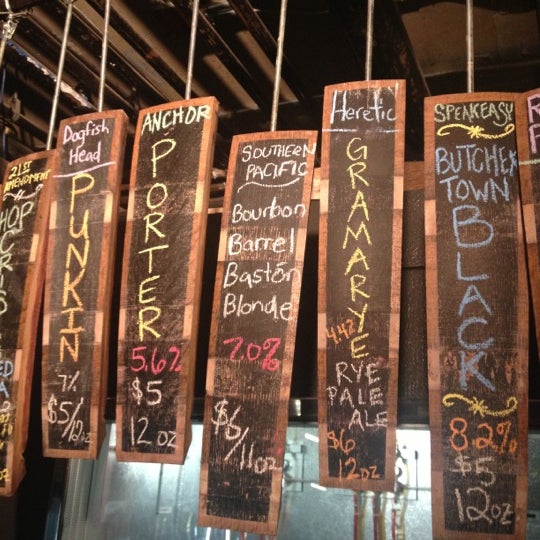 21ST
AMENDMENT
HOP
CRIS
Dogfish
Head
PUNKIN
7%
$5/12oz
ANCHOR
PORTER
5.6%
$5
12 oz
SOUTHERN
PACIFIC
Bourbon
Barrel
Bastón
Blonde
7.0%
$6/11oz
Heretic
GRAMARYE
4.4%
RYE
PALE
ALE
$6
12oz
SPEAKEASY
BUTCHER
TOWN
BLACK
8.2%
$5
12oz